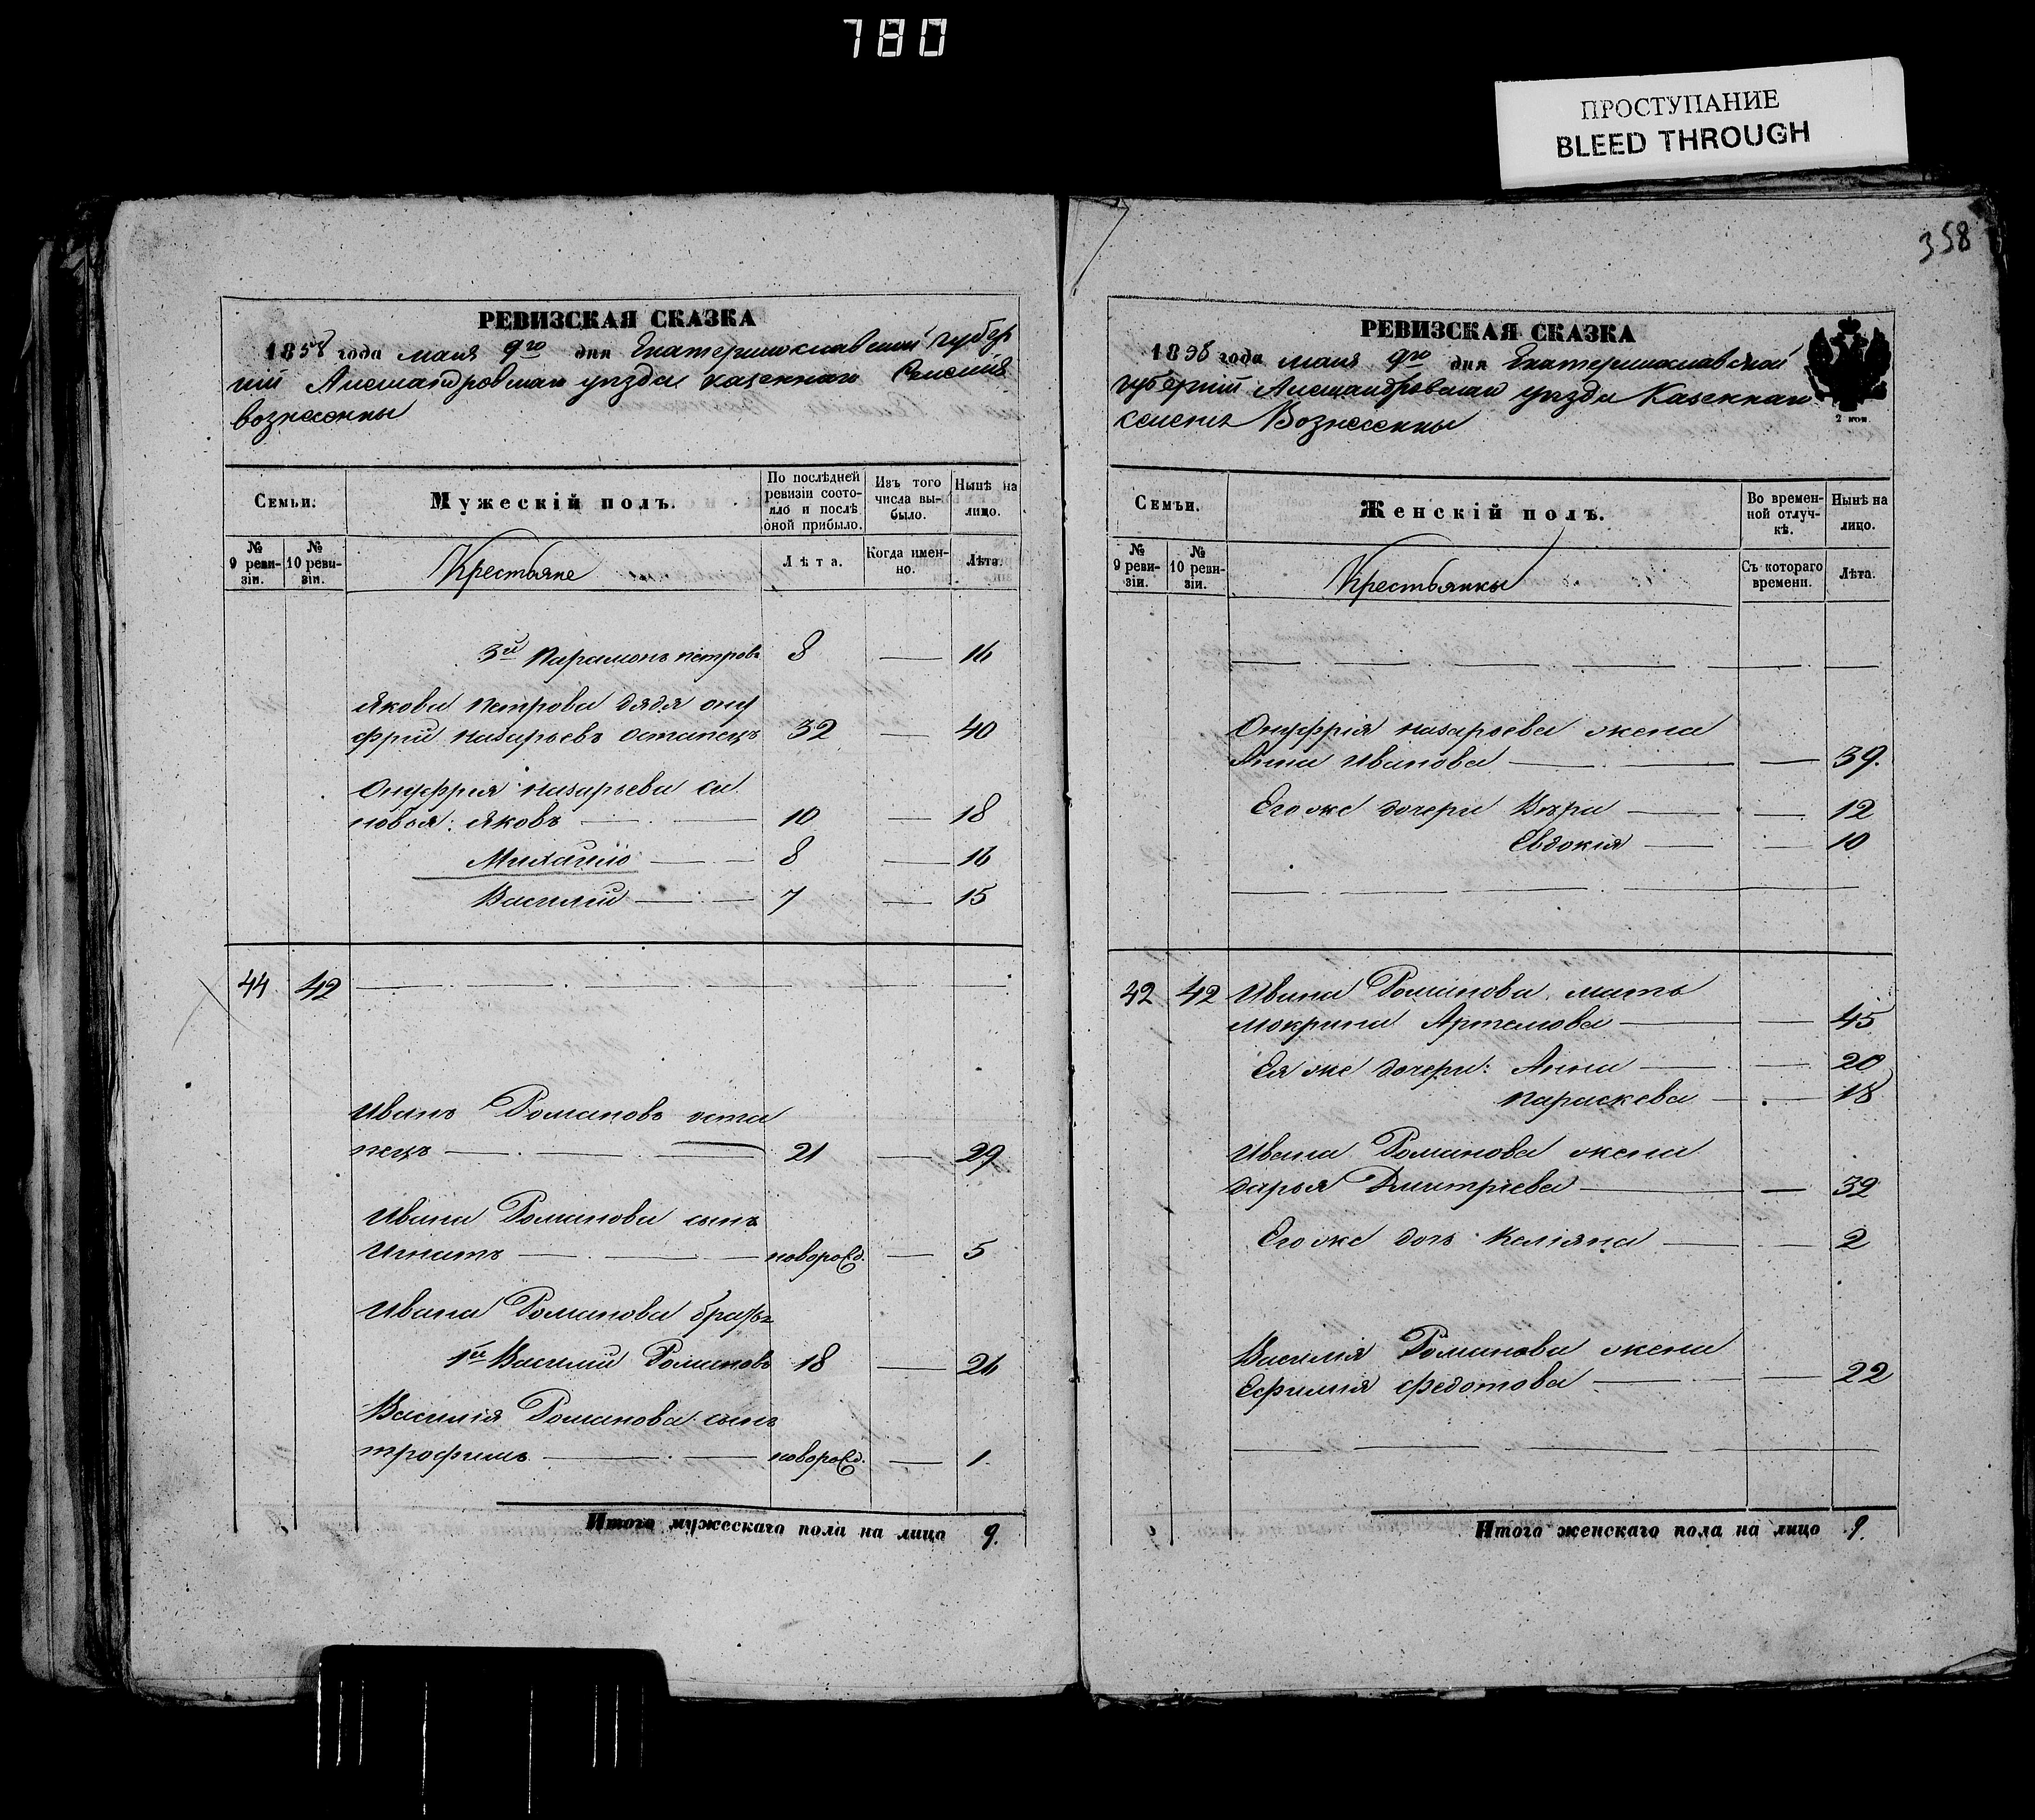 780
ПРОСТУПАНИЕ
BLEED THROUGH
358
РЕВИЗСКАЯ СКАЗКА
1858 года мая 9го дня Екатеринославской губер
нiи Александровскаго уезда казеннаго Селенiя
вознесенки
Семьи.
Мужескій полъ.
По послѣдней ревизіи состояло и послѣ оной прибыло.
Изъ того числа выбыло.
Нынѣ на лицо.
№ 9 ревизіи.
№ 10 ревизіи.
Крестьяне
Лѣта.
Когда именно.
Лѣта.
3й Парамонъ петровъ 8 — 16
Якова петрова дядя ону
фрій назарьевъ Остапецъ 32 — 40
Онуфрія назарьева сы
новья: Яковъ — 10 — 18
Михайло — 8 — 16
Василій — 7 — 15
44 42
Иванъ Романовъ оста
пецъ — 21 — 29
Ивана Романова сынъ
Игнатъ — новорожд. — 5
Ивана Романова братья
1й Василій Романовъ 18 — 26
Василія Романова сынъ
трофимъ — новорожд. — 1
Итого мужескаго пола на лицо 9.
РЕВИЗСКАЯ СКАЗКА
1858 года мая 9го дня Екатеринославской
губернiи Александровскаго уезда Казеннаго
селенiя Вознесенки
2 коп.
Семьи.
Женскій полъ.
Во временной отлучкѣ.
Нынѣ на лицо.
№ 9 ревизіи.
№ 10 ревизіи.
Крестьянки
Съ котораго времени.
Лѣта.
Онуфрія назарьева жена
Анна Иванова — 39.
Его же дочери Вѣра — 12
Евдокія — 10
42 42 Ивана Романова мать
мокрина Артемова — 45
Ея же дочери: Анна — 20
параскева — 18
Ивана Романова жена
дарья Дмитріева — 32
Его же дочь Келіяна — 2
Василія Романова жена
Ефимія федотова — 22
Итого женскаго пола на лицо 9.